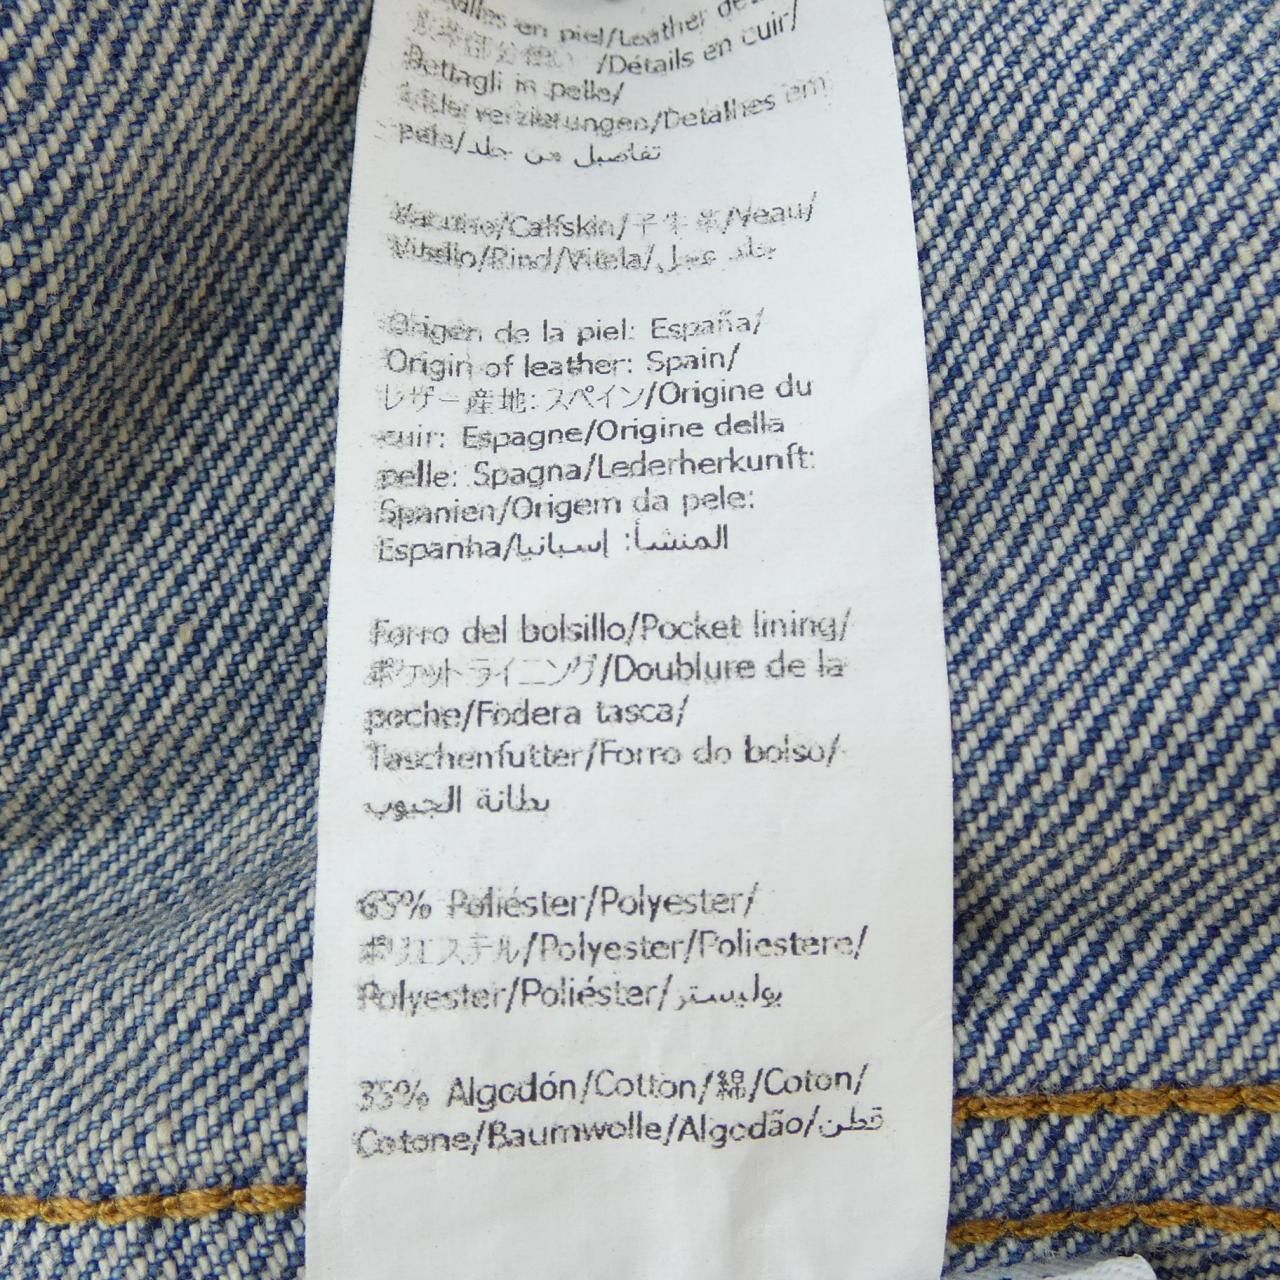 en piel/Leather
/Détails en cuir/
Dettagli in pelle/
verzierungen/Detalhes em
pele/تفاصيل من جلد
Vacuno/Calfskin/子牛革/Veau/
Vitello/Rind/Vitela/جلد عجل
Origen de la piel: España/
Origin of leather: Spain/
レザー産地: スペイン/Origine du
cuir: Espagne/Origine della
pelle: Spagna/Lederherkunft:
Spanien/Origem da pele:
Espanha/المنشأ: إسبانيا
Forro del bolsillo/Pocket lining/
ポケットライニング/Doublure de la
poche/Fodera tasca/
Taschenfutter/Forro do bolso/
بطانة الجيوب
65% Poliéster/Polyester/
ポリエステル/Polyester/Poliestere/
Polyester/Poliéster/بوليستر
35% Algodón/Cotton/綿/Coton/
Cotone/Baumwolle/Algodão/قطن